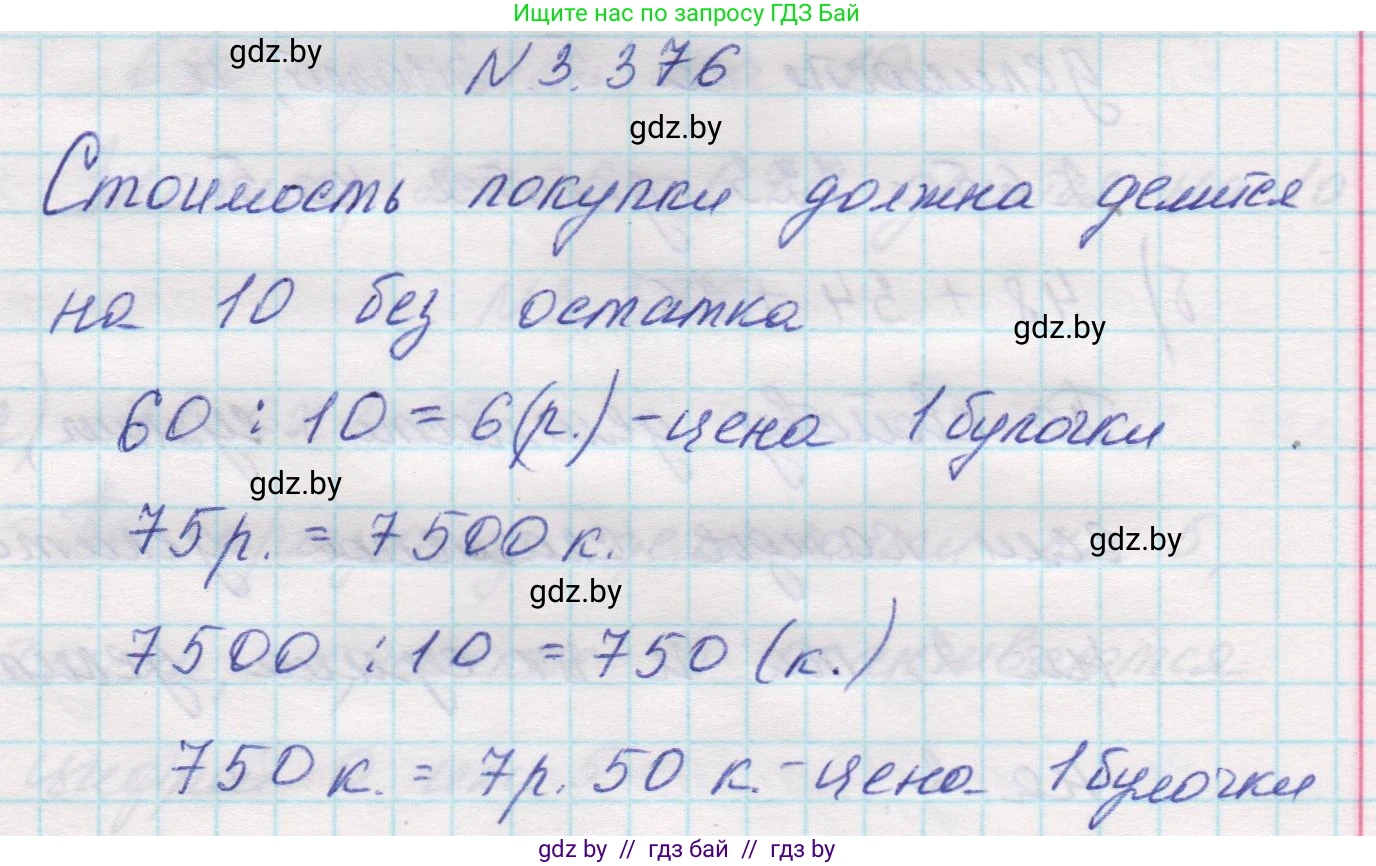 Ищите нас по запросу ГДЗ Бай
gdz.by
N 3.376
gdz.by
Стоимость покупки должна делится
на 10 без остатка
gdz.by
60 : 10 = 6 (р.) - цена 1 булочки
gdz.by
75 р. = 7500 к.
gdz.by
gdz.by
7500 : 10 = 750 (к.)
750 к. = 7 р. 50 к. - цена 1 булочки
gdz by // гдз бай // гдз by